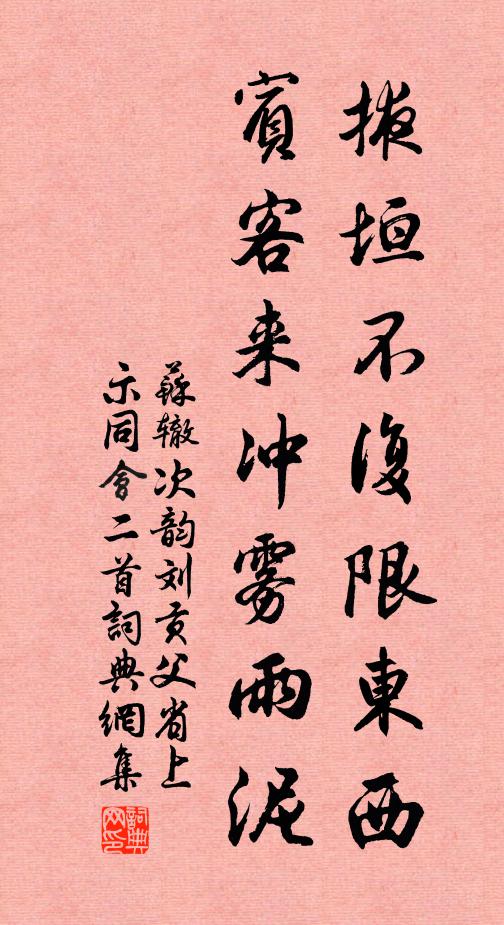 掖垣不復限東西
賓客来冲雾雨泥
蘇辙次韵刘贡父省上
示同會二首詞典網集
詞典
网印